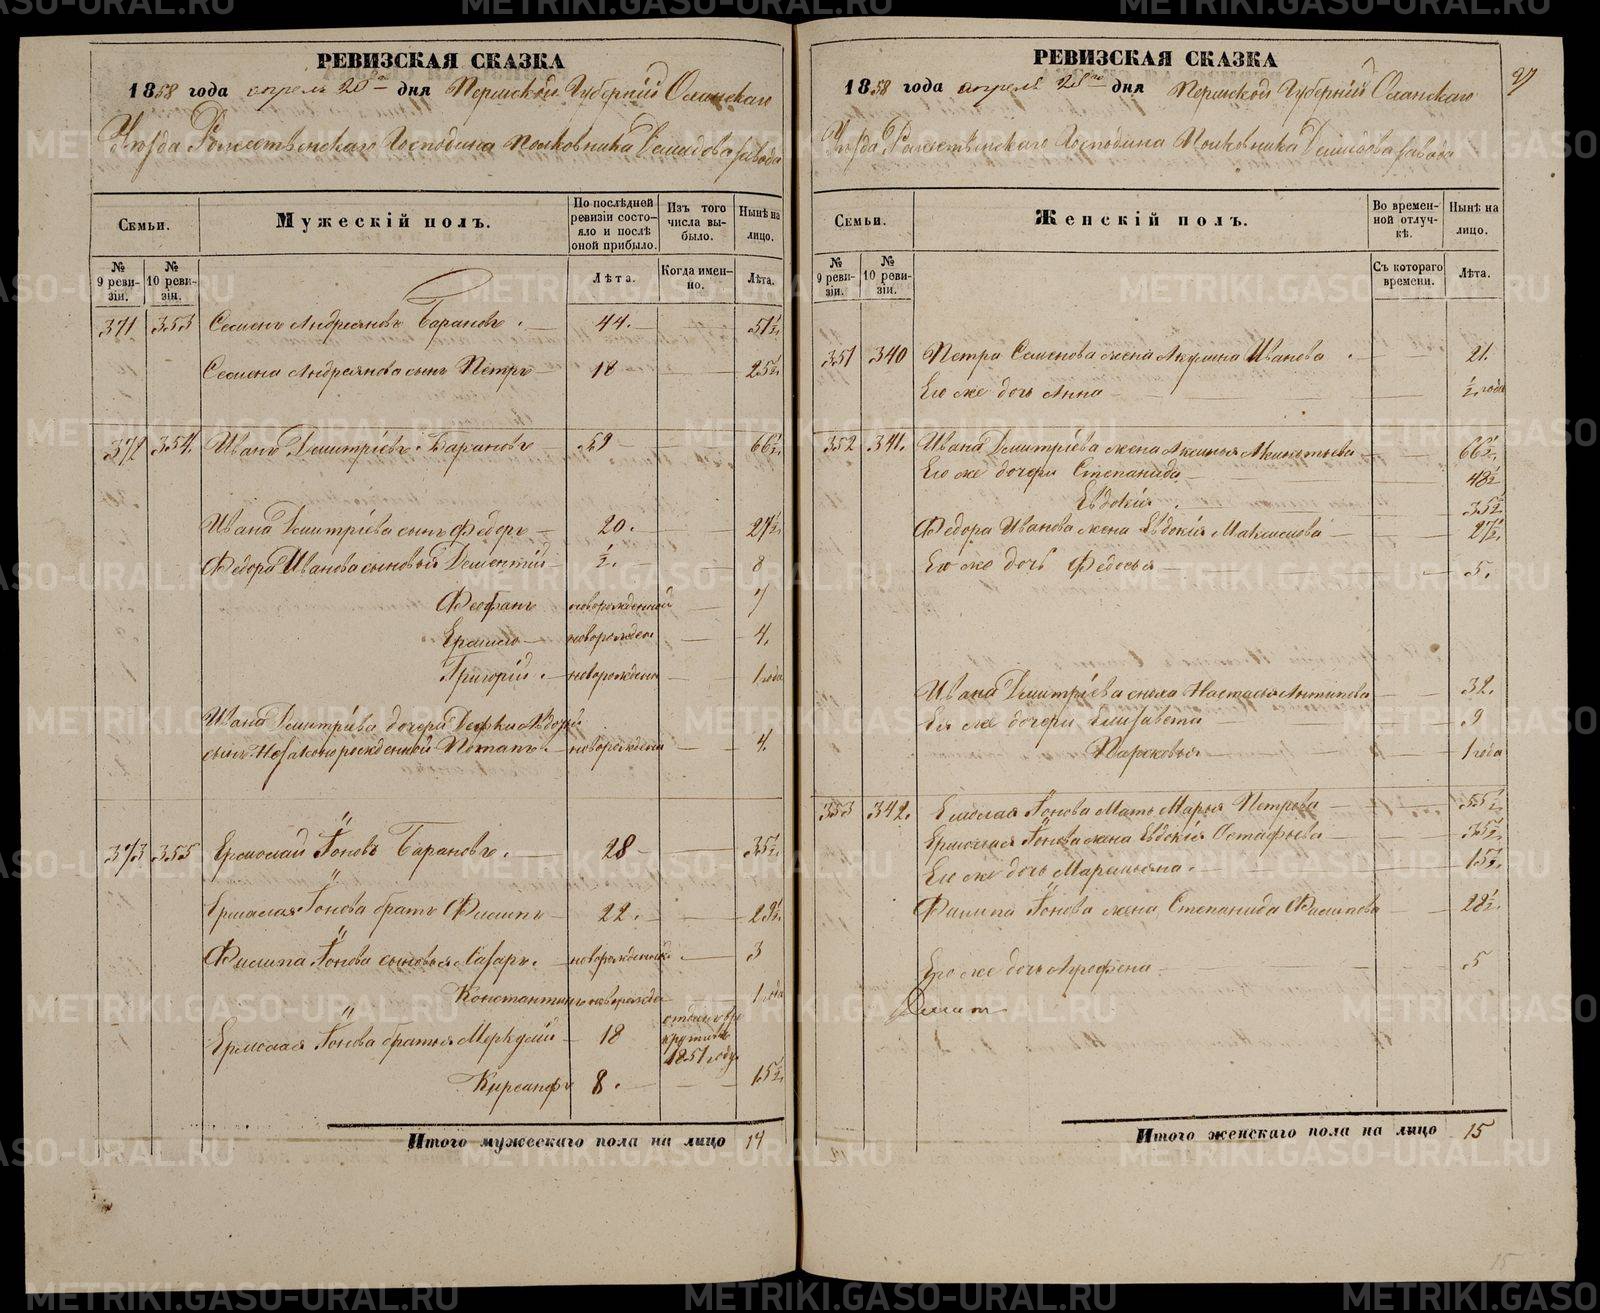 РЕВИЗСКАЯ СКАЗКА
1858 года апреля 20го дня Пермской Губернiи Осинскаго
Уѣзда Рожественскаго Господина Полковника Демидова завода
Семьи.
Мужескiй полъ.
По послѣдней ревизiи состояло и послѣ оной прибыло.
Изъ того числа выбыло.
Нынѣ на лицо.
№ 9 ревизiи.
№ 10 ревизiи.
Лѣта.
Когда именно.
Лѣта.
371 353 Семенъ Андреяновъ Барановъ. 44. 51½
Семена Андреянова сынъ Петръ 18 25½
372 354. Иванъ Дмитрiевъ Барановъ 59 66½
Ивана Дмитрiева сынъ Федоръ 20. 27½
Федора Иванова сыновья Дементiй ½. 8
Феофанъ новорожденной 7
новорожден 4.
Григорiй. новорожден 1 года
Ивана Дмитрiева дочери Девки
сынъ Незаконорожденной Потапъ. новорожден 4.
373 355 Ермолай Iоновъ Барановъ. 28 35½
Ермолая Iонова братъ Филипъ 22. 29½
Филипа Iонова сыновья Лазарь. новорожденной 3
Константинъ новорожде 1 года
Ермолая Iонова братья Меркулiй 18 1851 году
Кирсанфъ 8. 15½
Итого мужескаго пола на лицо 14
РЕВИЗСКАЯ СКАЗКА
27
1858 года апреля 20го дня Пермской Губернiи Осинскаго
Уѣзда Рожественскаго Господина Полковника Демидова завода
Семьи.
Женскiй полъ.
Во временной отлучкѣ.
Нынѣ на лицо.
№ 9 ревизiи.
№ 10 ревизiи.
Съ котораго времени.
Лѣта.
351 340 Петра Семенова жена Акулина Иванова 21.
Его же дочь Анна ½ года
352 341. Ивана Дмитрiева жена Аксинья 66½
Его же дочери Степанида 48½
Евдокiя 35½
Федора Иванова жена Евдокiя Максимова 27½
Его же дочь Федосья 5.
Ивана Дмитрiева сноха Настасья Антипова 32.
Ея же дочери Елизавета 9
Парасковья 1 года
353 342. Ермолая Iонова Мать Марья Петрова 55½
Ермолая Iонова жена Евдокiя Остафьева 35½
Его же дочь Маремьяна. 15½
Филипа Iонова жена Степанида Филипова 28½
Его же дочь Агрофена 5
Итого женскаго пола на лицо 15
15
METRIKI.GASO-URAL.RU